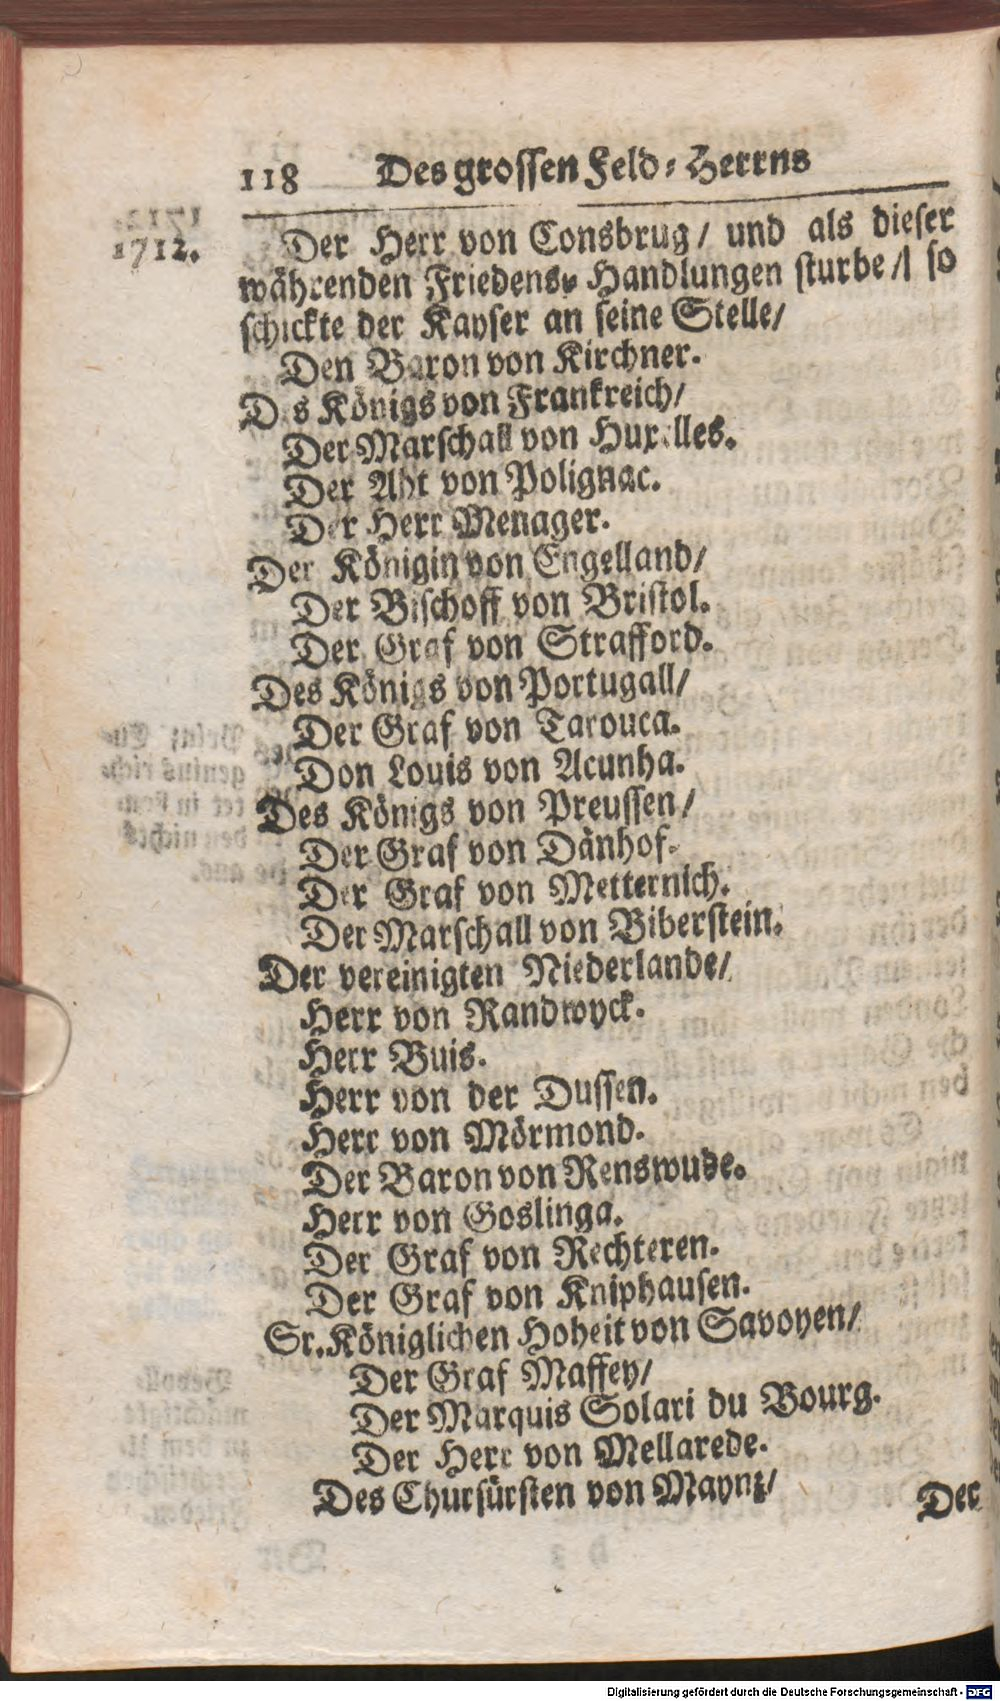 118 Des grossen Feld-Herrns
1712. Der Herr von Consbrug / und als dieser
währenden Friedens-Handlungen sturbe / so
schickte der Kayser an seine Stelle/
Den Baron von Kirchner.
Des Königs von Frankreich/
Der Marschall von Huxelles.
Der Abt von Polignac.
Der Herr Menager.
Der Königin von Engelland/
Der Bischoff von Bristol.
Der Graf von Strafford.
Des Königs von Portugall/
Der Graf von Tarouca.
Don Louis von Acunha.
Des Königs von Preussen/
Der Graf von Dänhof.
Der Graf von Metternich.
Der Marschall von Biberstein.
Der vereinigten Niederlande/
Herr von Randwyck.
Herr Buis.
Herr von der Dussen.
Herr von Mörmond.
Der Baron von Renswude.
Herr von Goslinga.
Der Graf von Rechteren.
Der Graf von Kniphausen.
Sr. Königlichen Hoheit von Savoyen/
Der Graf Maffey/
Der Marquis Solari du Bourg.
Der Herr von Mellarede.
Des Churfürsten von Mayntz/
Der
Digitalisierung gefördert durch die Deutsche Forschungsgemeinschaft - DFG